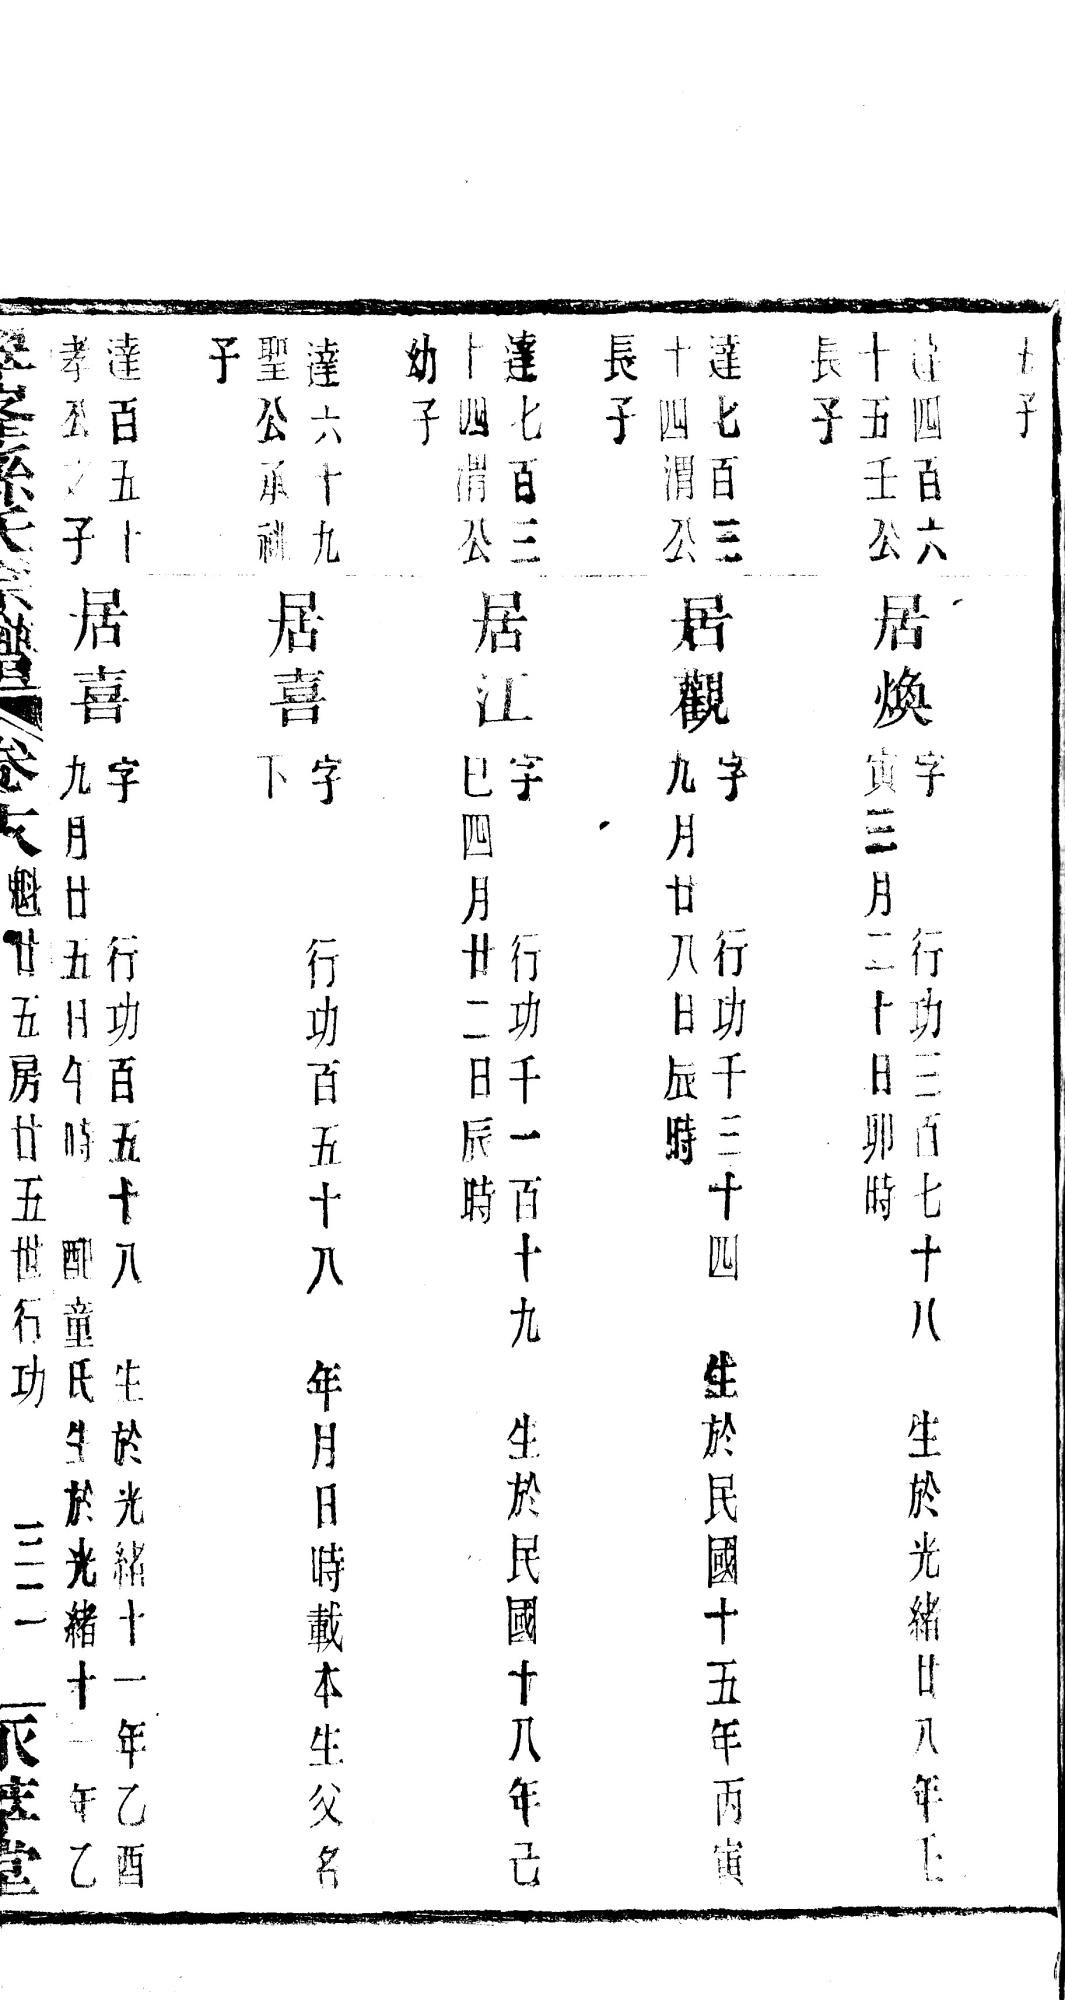 子
達四百六
十五壬公
長子
居煥
字　行功三百七十八　生於光緒廿八年壬
寅三月二十日卯時
達七百三
十四渭公
長子
居觀
字　行功千三十四　生於民國十五年丙寅
九月廿八日辰時
達七百三
十四渭公
幼子
居江
字　行功千一百十九　生於民國十八年己
巳四月廿二日辰時
達六十九
聖公承祧
子
居喜
字　行功百五十八　年月日時載本生父名
下
達百五十
孝公之子
居喜
字　行功百五十八　生於光緒十一年乙酉
九月廿五日午時　配童氏生於光緒十一年乙
孫氏宗譜　卷　魁廿五房廿五世行功　堂